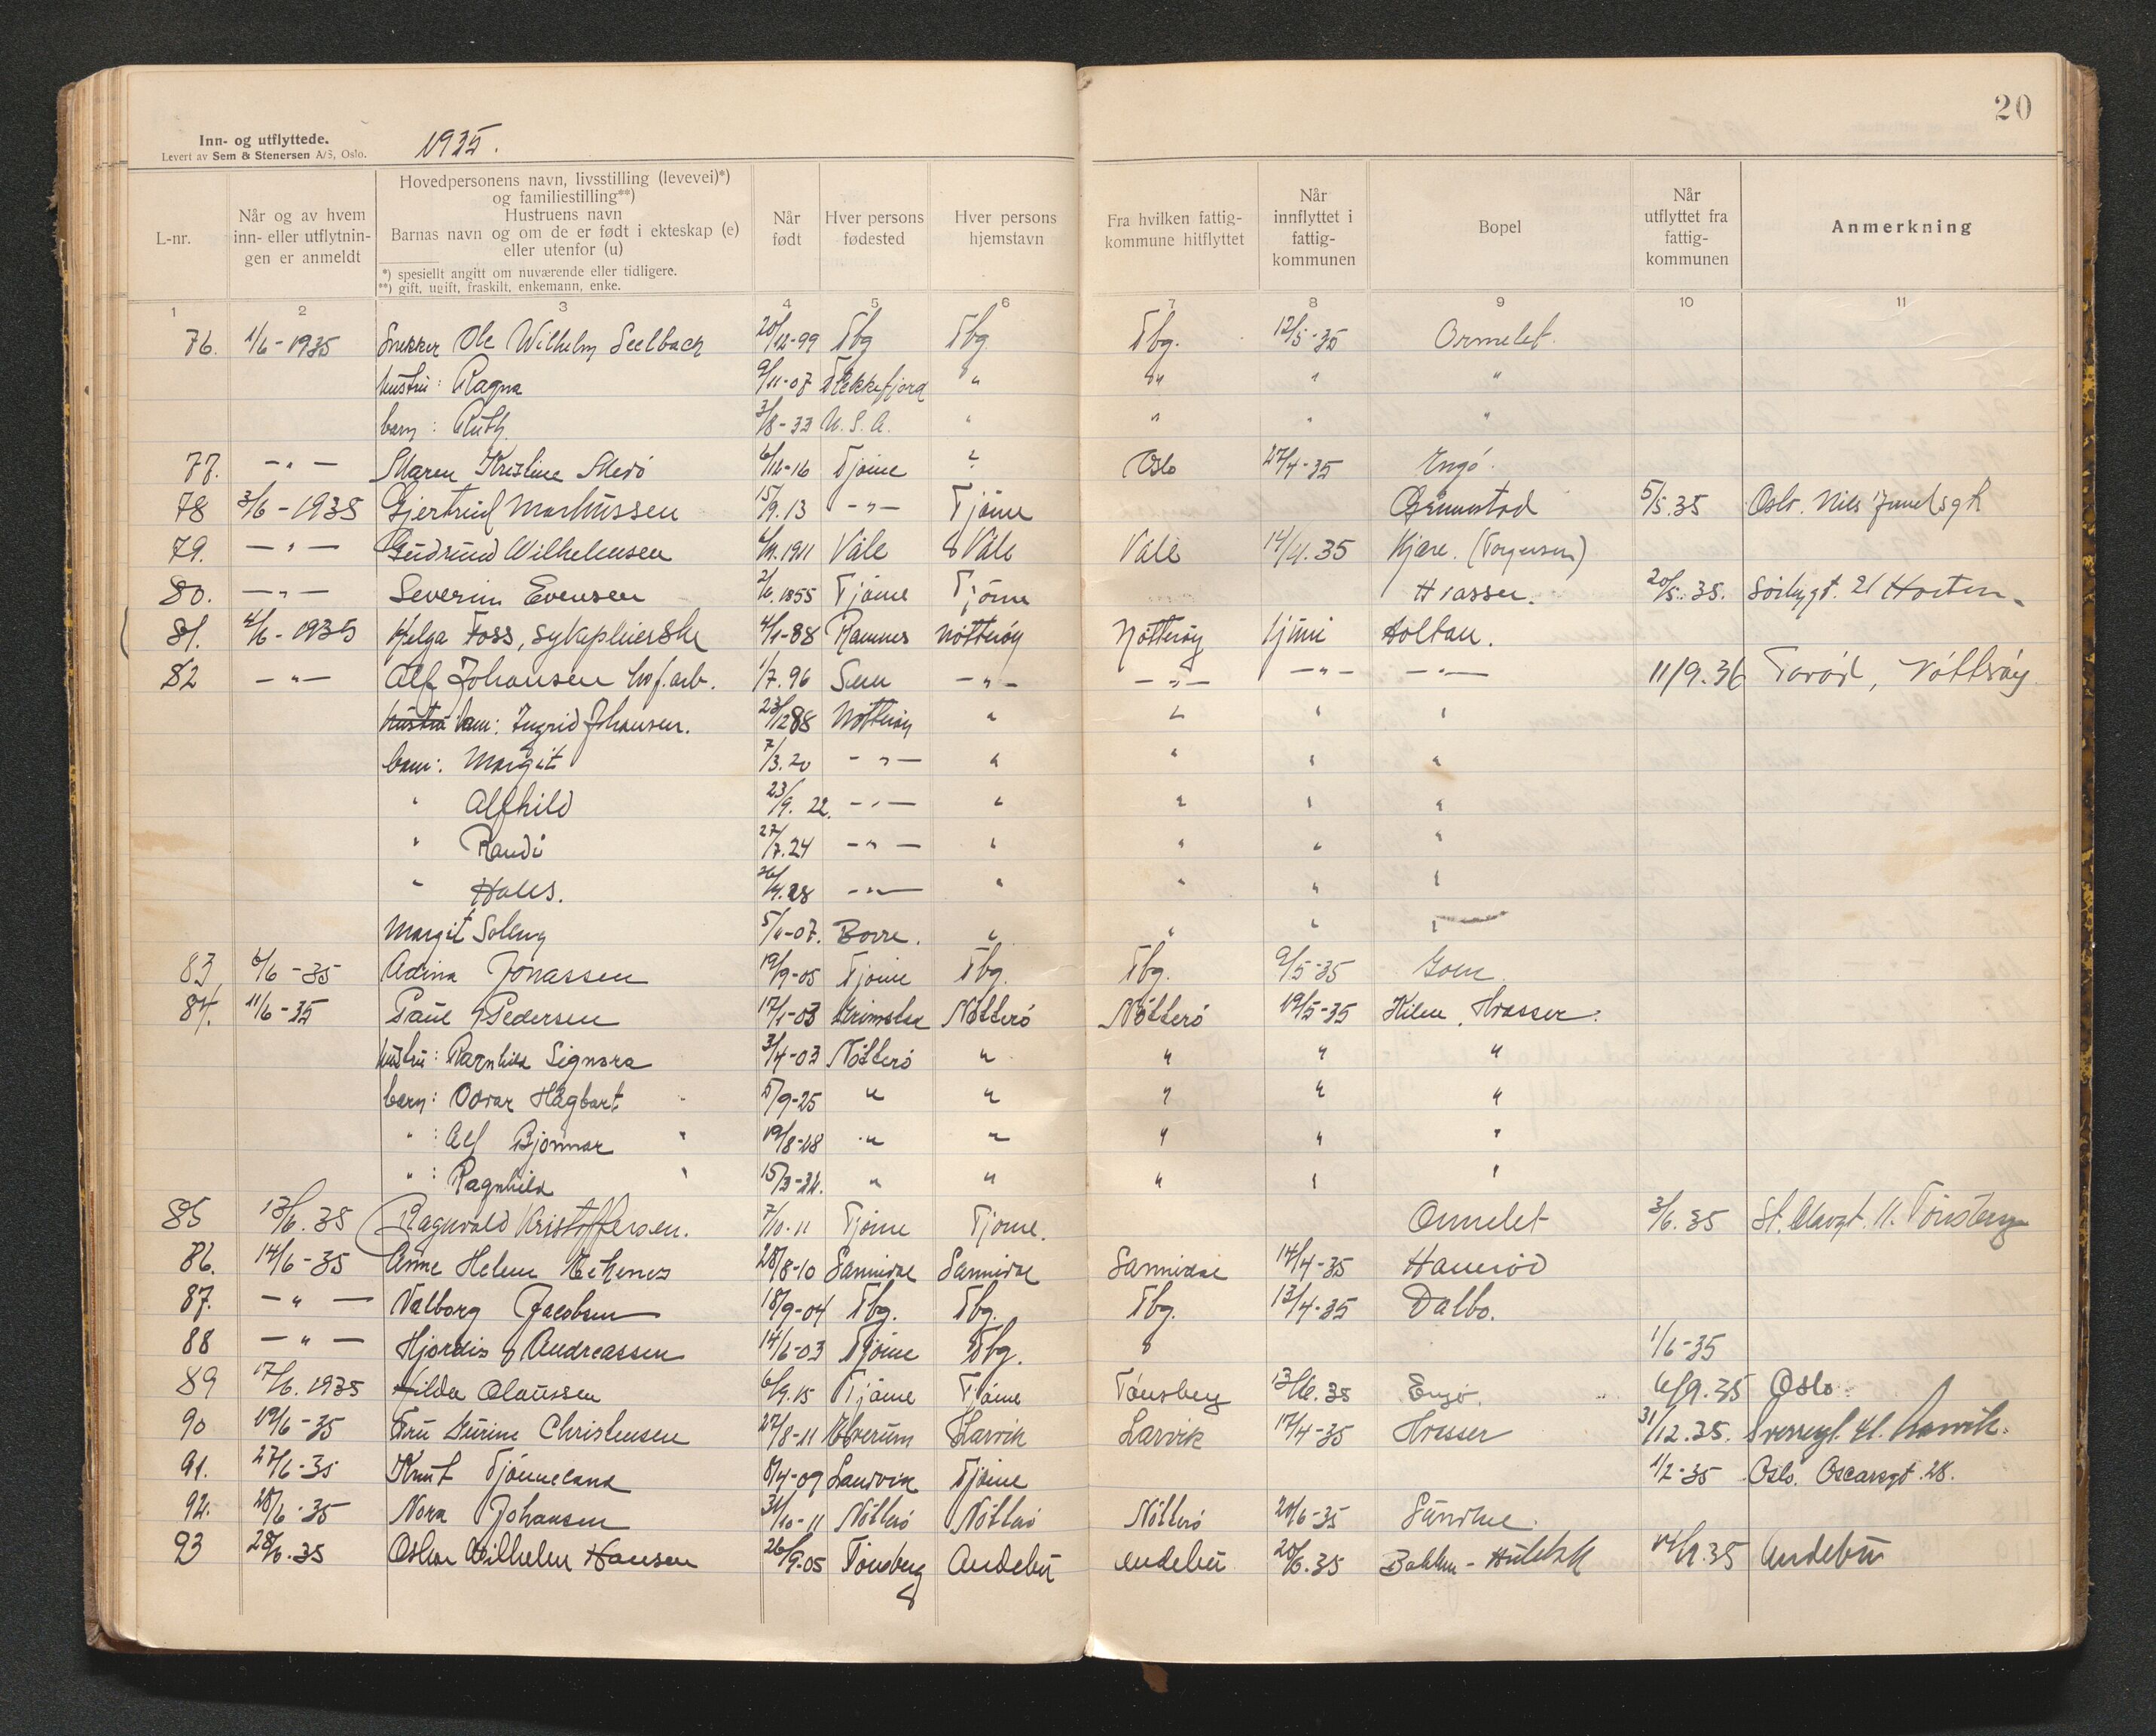 20
Inn- og utflyttede.
Levert av Sem & Stenersen A/S, Oslo.
1935.
L-nr.
Når og av hvem inn- eller utflytnin-gen er anmeldt
Hovedpersonens navn, livsstilling (levevei)*) og familiestilling**)
Hustruens navn
Barnas navn og om de er født i ekteskap (e) eller utenfor (u)
*) spesielt angitt om nuværende eller tidligere.
**) gift, ugift, fraskilt, enkemann, enke.
Når født
Hver persons fødested
Hver persons hjemstavn
Fra hvilken fattig-kommune hitflyttet
Når innflyttet i fattig-kommunen
Bopel
Når utflyttet fra fattig-kommunen
Anmerkning
1 2 3 4 5 6 7 8 9 10 11
76. 1/6-1935 Snekker Ole Wilhelm Seelbach 20/12-99 Tbg Tbg Tbg. 12/5-35 Ormelet.
hustru: Ragna 9/11-07 Flekkefjord " " " "
barn: Ruth 3/8-33 U.S.A. " " " "
77. -"- Maren Kristine 6/12-16 Tjøme ? Oslo 27/4-35 Engø.
78 3/6-1935 Gjertrud Markussen 15/9.13 -"- Tjøme Grimestad 5/5.35 Oslo. Nils
79. -"- Gudrund Wilhelmsen 1911 Våle Våle Våle 14/4.35 Kjære. (Torgersen)
80. -"- Severin Evensen 2/6.1855 Tjøme Tjøme Hvasser. 20/5.35. 21 Horten.
81. 4/6-1935 Helga Foss, sykepleierske 4/1-88 Ramnes Nøtterøy Nøtterøy Holtan.
82 -"- Alf Johansen hvf.arb. 1/7.96 Sem -"- -"- -"- -"- 11/9.36 Torød, Nøtterøy
hustru: Ingrid Johansen. 23/12 88 Nøtterøy " " " "
barn: Margit 7/3.20 -"- " " " "
" Alfhild 23/9.22. -"- " " " "
" Randi 27/7.24 -"- " " " "
" Hans. 26/4.28 -"- " " " "
Margit Soleng 5/11-07. Borre. " " " "
83 6/6-35 Adina Jonassen 19/9-05 Tjøme Tbg. Tbg. 9/5-35
84. 11/6-35 Paul Pedersen 17/1-03 Grimstad Nøtterø Nøtterø 19/5-35 Kilen, Hvasser.
hustru: Ragnhild Signora 3/4-03 Nøtterø " " " "
barn: Odvar Hagbart 5/9-25 " " " " "
": Alf Bjønnar 19/8-28 " " " " "
": Ragnhild 15/3-32. " " " " "
85 13/6.35 Ragnvald Kristoffersen. 7/10-11 Tjøme Tjøme. Ormelet 3/6.35 St. Olavgt. 11. Tønsberg
86. 14/6-35 Anne Helene 28/8-10 Sannidal Sannidal Sannidal 14/4-35 Hamrød
87. -"- Valborg Jacobsen 18/9-04 Tbg. Tbg. Tbg. 13/4-35 Dalbo.
88 -"- Hjordis Andreassen 14/6-03 Tjøme Tbg. 1/6-35
89 17/6.1935 Hilda Olaussen 6/9.15 Tjøme Tjøme Tønsberg 13/6.35 Engø. 6/9.35 Oslo
90 19/6-35 Fru Gurine Christensen 27/8-11 Elverum Larvik Larvik 17/4-35 Hvasser 31/12.35. Sverresgt. 41. Larvik.
91. 27/6-35 Knut Tjønneland 8/4-09 Landvik Tjøme 1/2-35 Oslo. Oscarsgt. 28.
92. 28/6-35 Nora Johansen 31/10-11 Nøtterø Nøtterø Nøtterø 20/6-35 Sundene.
93 28/6.35 Oskar Wilhelm Hansen 26/9-05 Tønsberg Andebu Andebu 20/6.35 Bakken - 14/9.35 Andebu